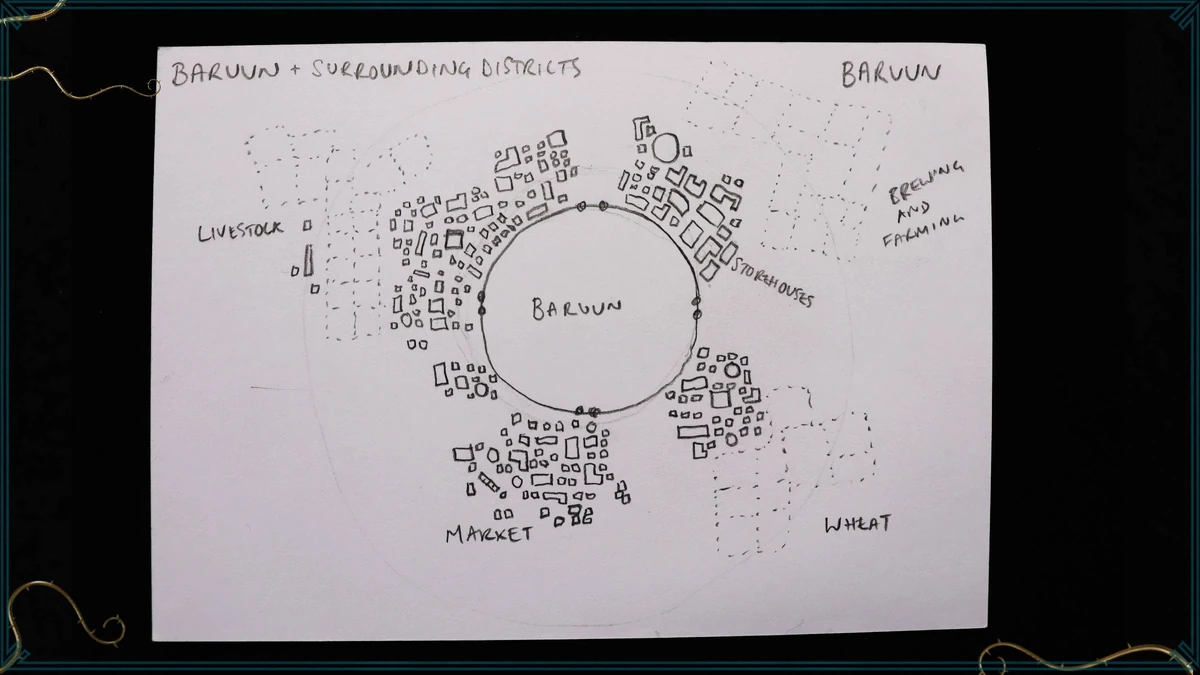 BARUUN + SURROUNDING DISTRICTS
BARUUN
BREWING
AND
FARMING
LIVESTOCK
STOREHOUSES
BARUUN
MARKET
WHEAT